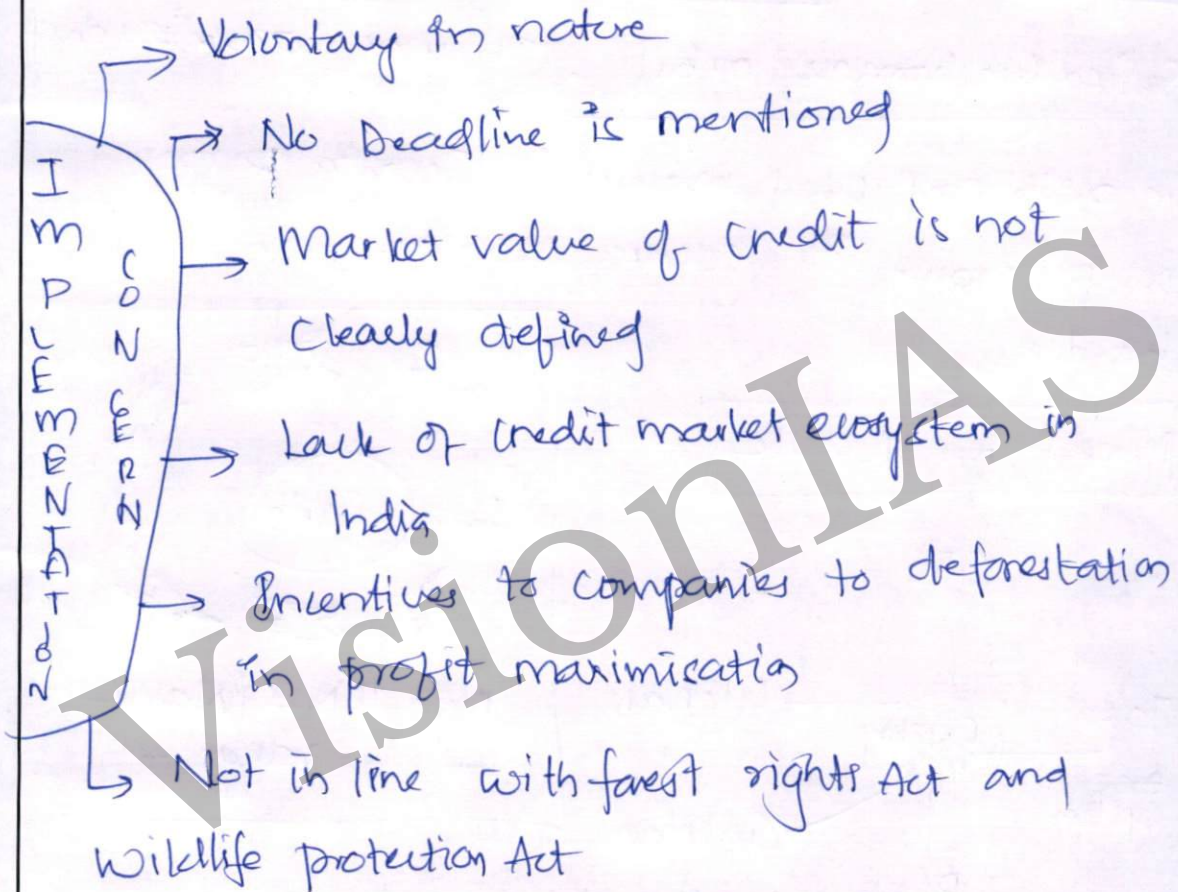 Voluntary in nature
No Deadline is mentioned
Market value of credit is not
Clearly defined
Lack of credit market ecosystem in
India
Incentives to companies to deforestation
in profit maximisation
Not in line with forest rights Act and
Wildlife protection Act
IMPLEMENTATION
CONCERN
VisionIAS